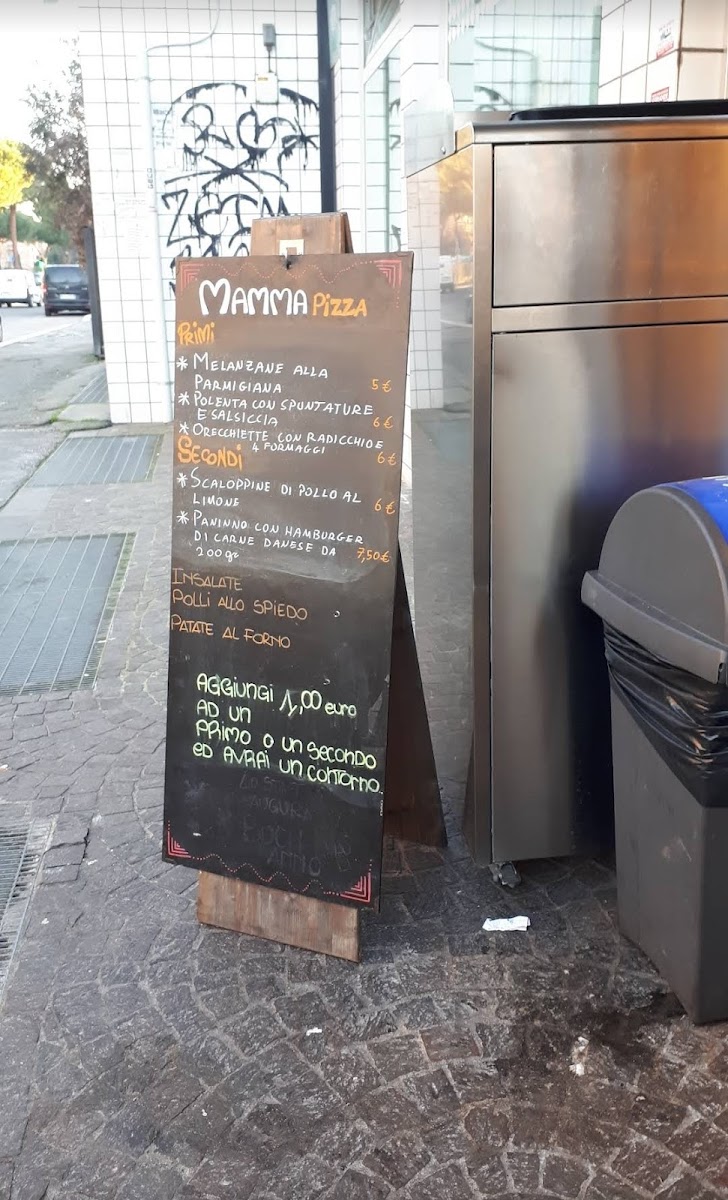 MAMMA PIZZA
PRIMI
* MELANZANE ALLA
PARMIGIANA 5€
* POLENTA CON SPUNTATURE
E SALSICCIA 6€
* ORECCHIETTE CON RADICCHIO E
4 FORMAGGI 6€
SECONDI
* SCALOPPINE DI POLLO AL
LIMONE 6€
* PANINNO CON HAMBURGER
DI CARNE DANESE DA
200gr 7,50€
INSALATE
POLLI ALLO SPIEDO
PATATE AL FORNO
AGGIUNGI 1,00 euro
AD UN
PRIMO O UN SECONDO
ED AVRAI UN CONTORNO.